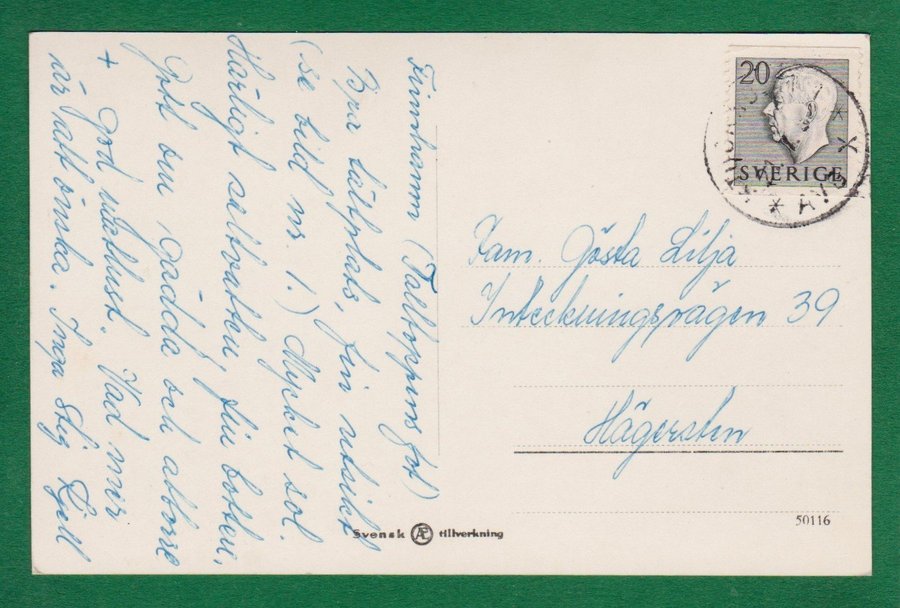 Finnhamn (Talltoppens fot)
Bra tältplats, fin utsikt
(se bild nr. 1.) Mycket sol.
Härligt saltvatten, fin botten.
Gott om gädda och aborre
+ god matlust. Vad mer
är att önska. Inga Stig Kjell
20
SVERIGE
Fam. Gösta Lilja
Inteckningsvägen 39
Hägersten
50116
Svensk Æ tillverkning